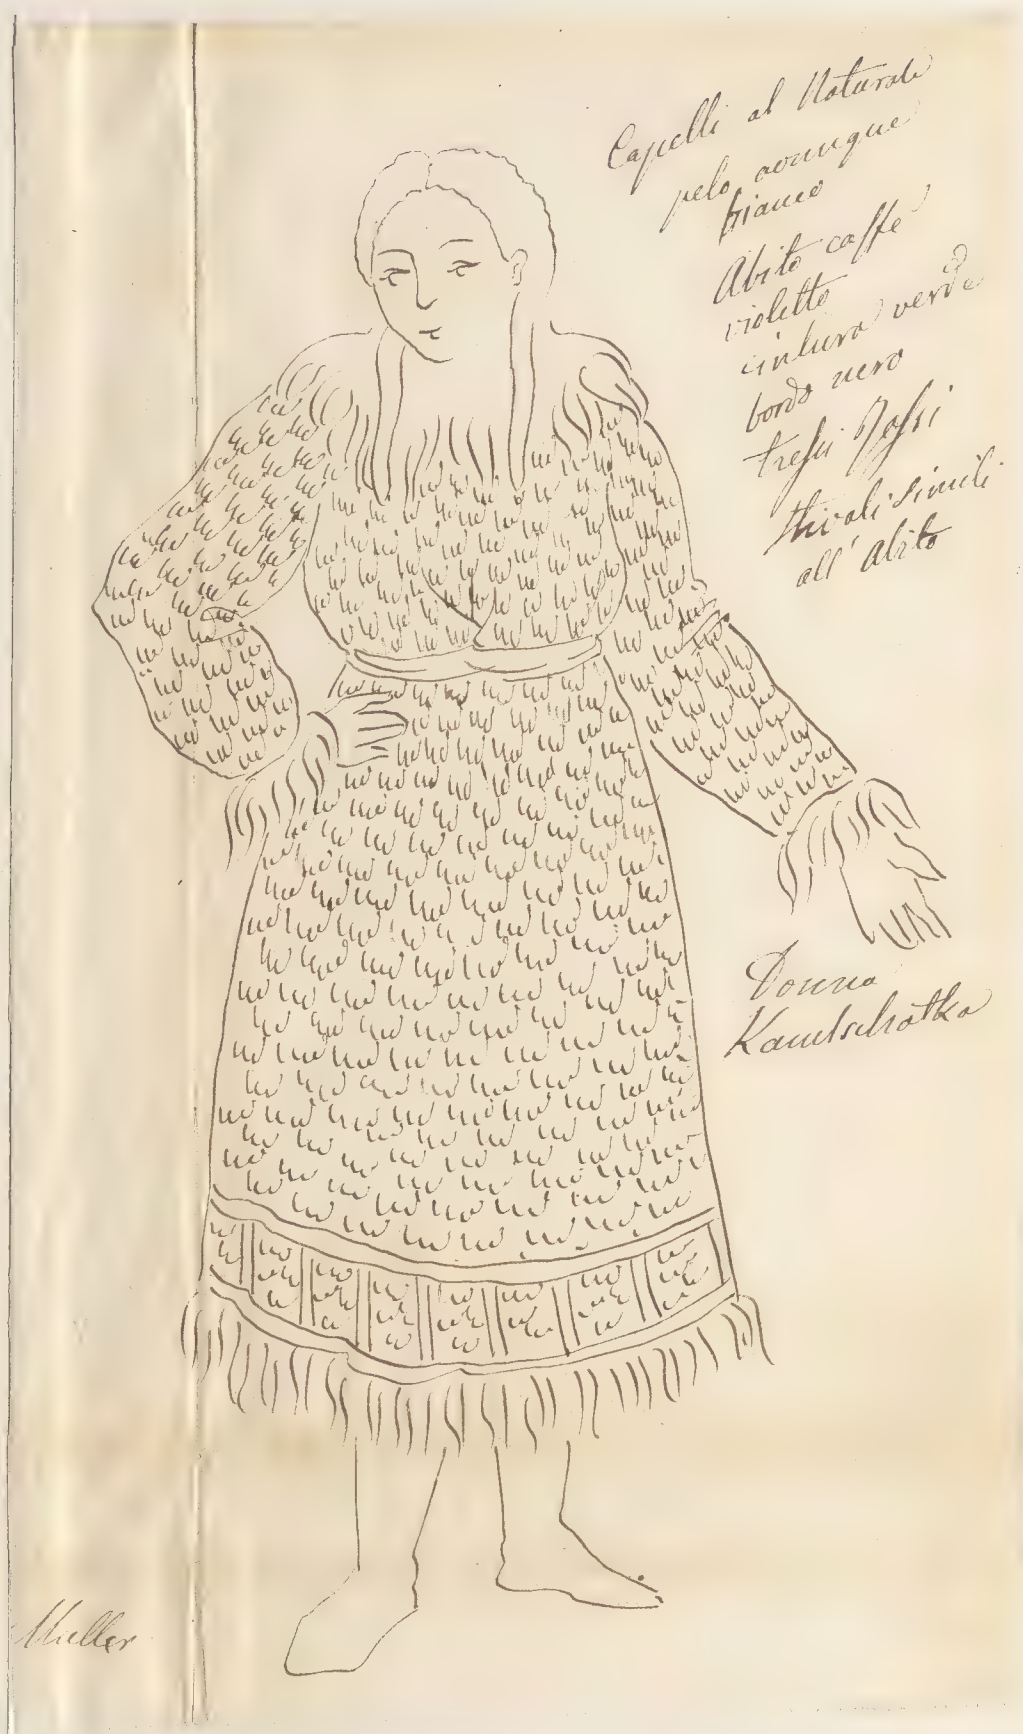 Capelli al Naturale
pelo avunque
bianco
Abito caffe
violetto
cintura verde
bordo nero
trefsi Rofsi
Stivali simili
all' Abito
Donna
Kamtschatka
Muller